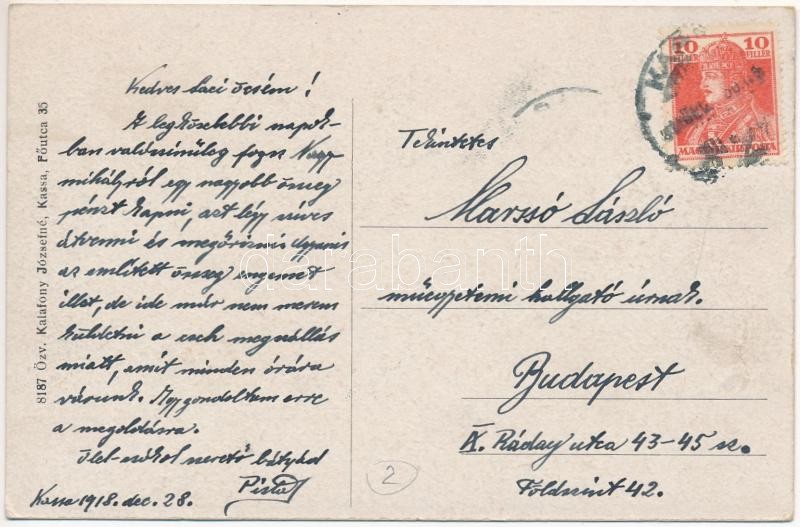 Kedves Laci öcsém!
A legközelebbi napok-
ban valószinüleg fogsz Nagy
mihályról egy nagyobb össeg
pénzt kapni, azt légy szíves
átvenni és megőrizni
az említett össeg engemet
illet, de ide már nem merem
küldetni a cseh megszállás
miatt, amit minden órára
várunk. Így gondoltam erre
a megoldásra.
Ölel-csókol szerető bátyád
Pista
Kassa 1918. dec. 28.
8187 Özv. Kalafony Józsefné, Kassa, Főutca 35
Tekintetes
Marssó László
műegyetemi hallgató úrnak.
Budapest
IX. Ráday utca 43-45 sz.
Földszint 42.
2
10 10
FILLÉR FILLÉR
MAGYAR KIR. POSTA
darabanth